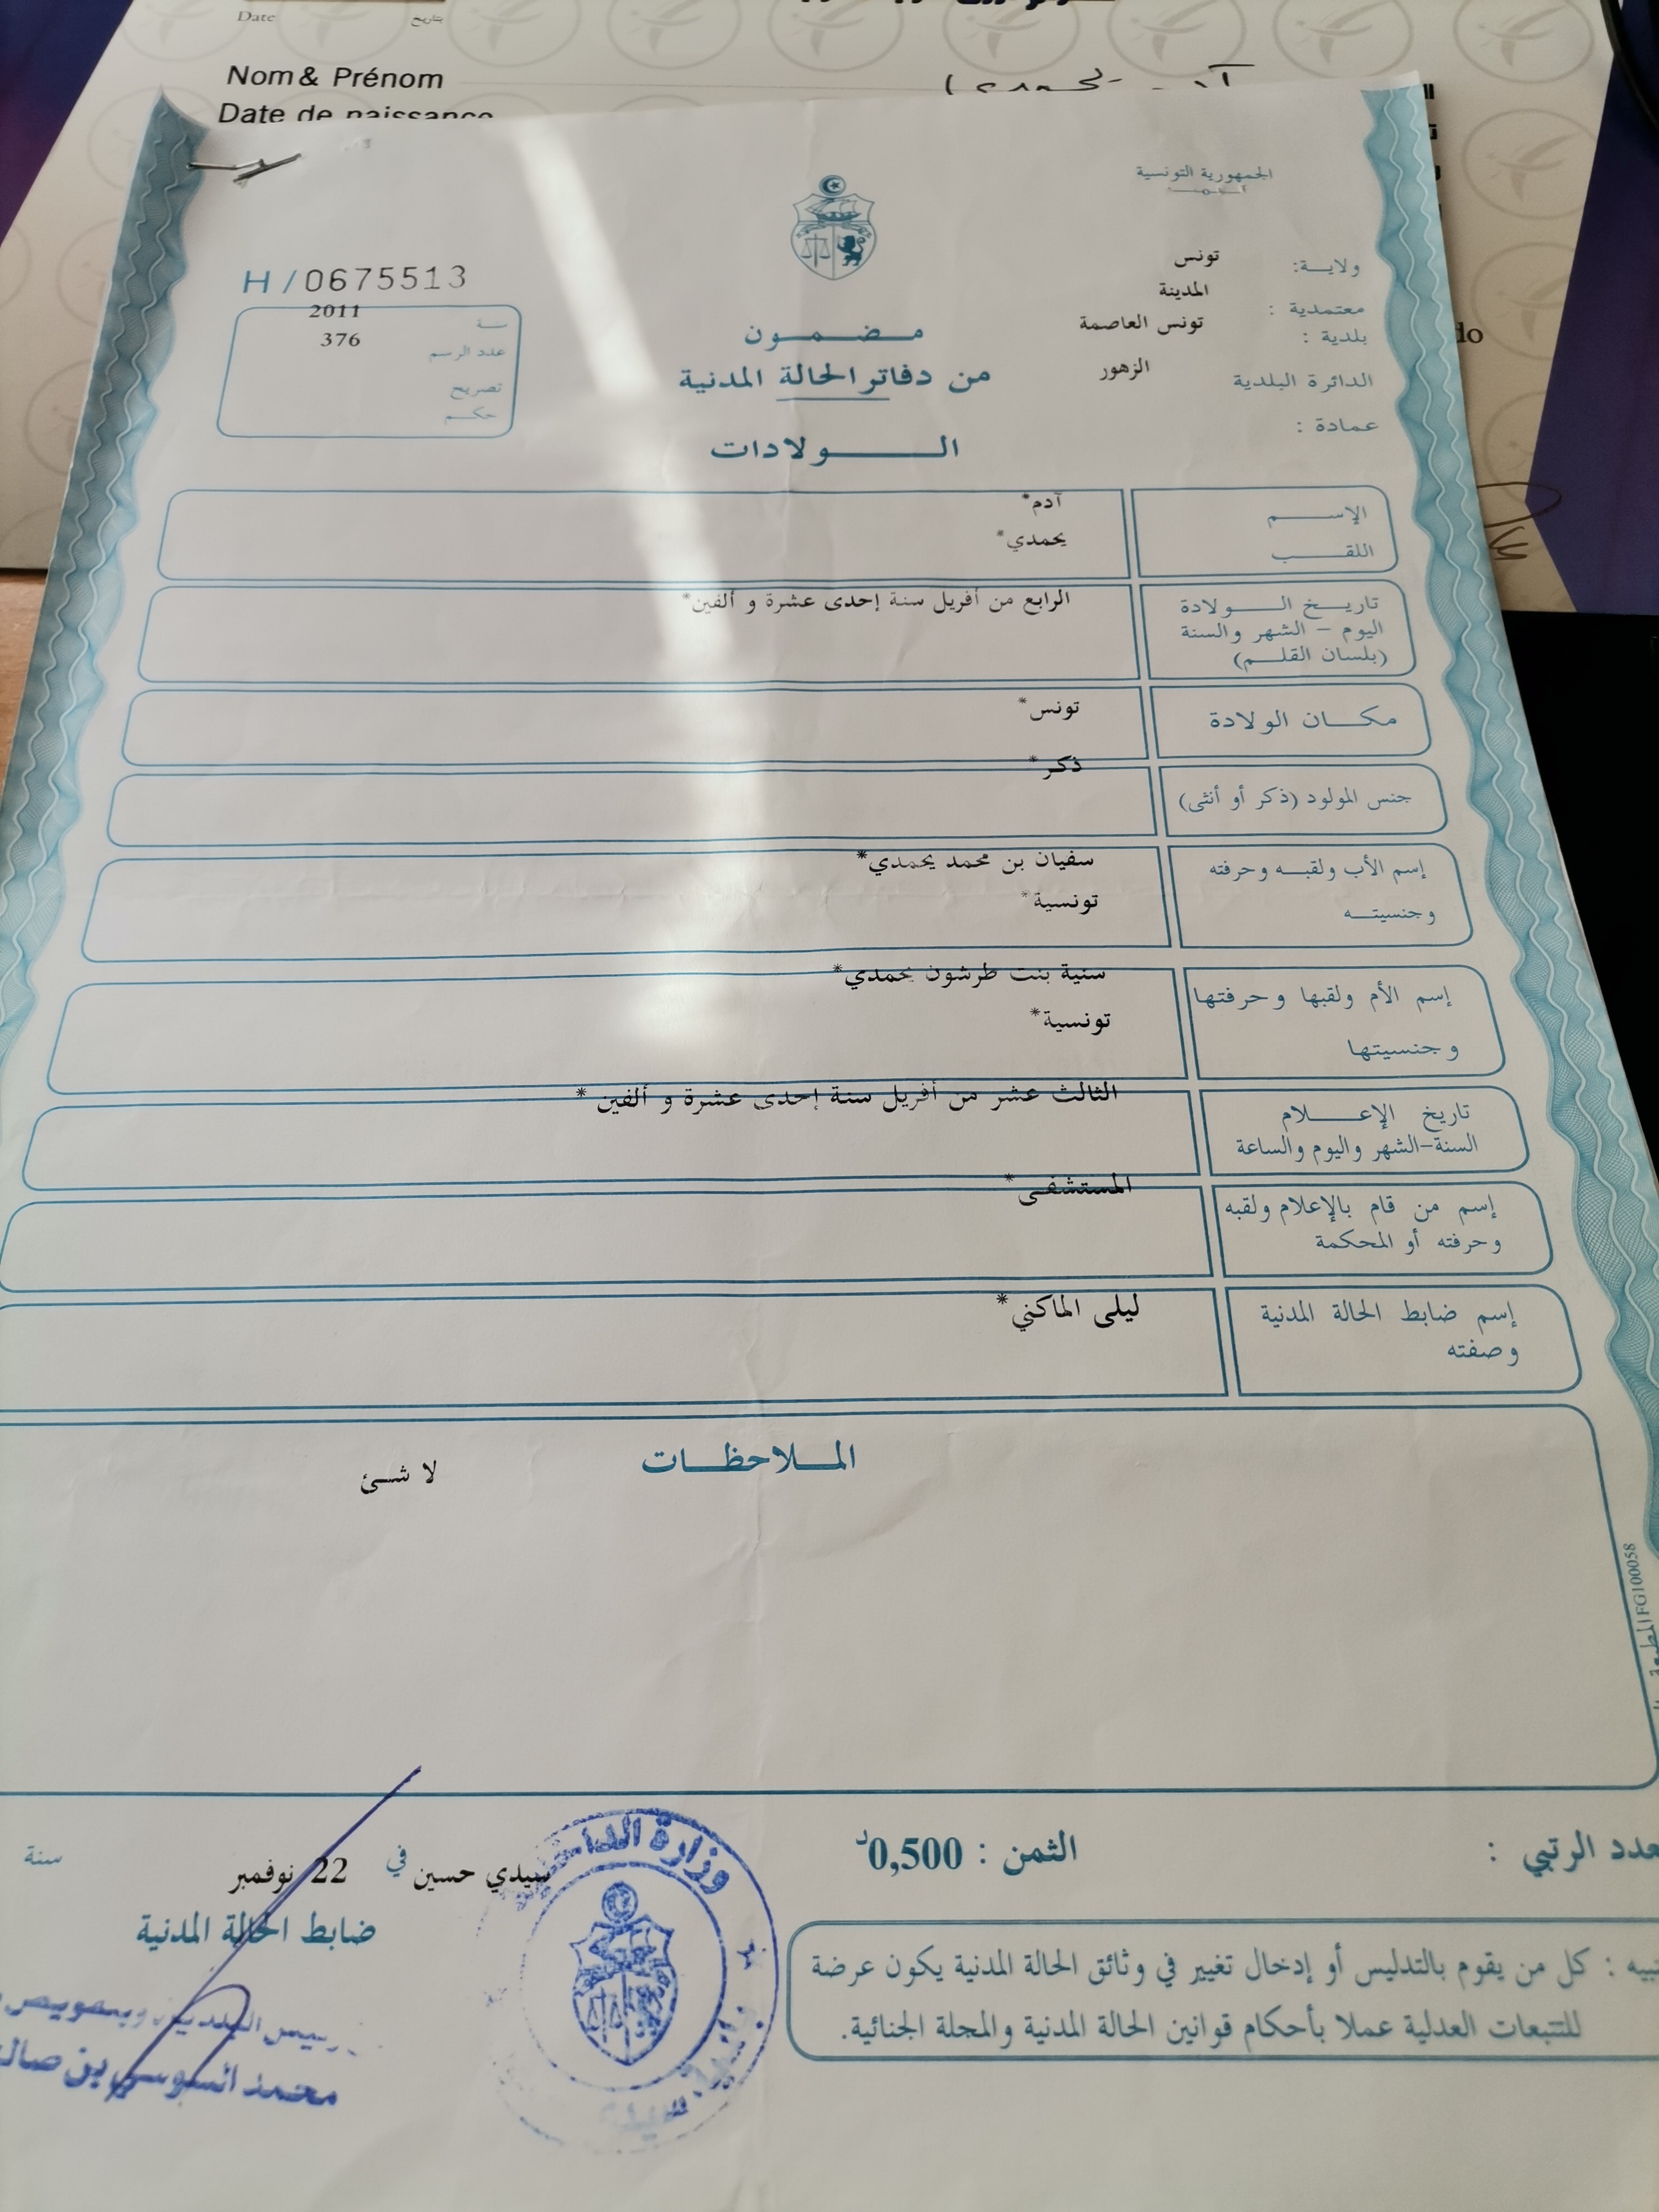 Date
بتاريخ
Nom & Prénom
Date de naissance
الجمهورية التونسية
ولايـــة: تونس
معتمدية : المدينة
بلدية : تونس العاصمة
الدائرة البلدية الزهور
عمادة :
H/0675513
سنة 2011
عدد الرسم 376
تصريح
حكم
مضمون
من دفاتر الحالة المدنية
الــولادات
الإســم آدم*
اللقــب يحمدي*
تاريخ الــولادة الرابع من أفريل سنة إحدى عشرة و ألفين*
اليوم – الشهر والسنة
(بلسان القلم)
مكــان الولادة تونس*
جنس المولود (ذكر أو أنثى) ذكر*
إسم الأب ولقبــه وحرفته سفيان بن محمد يحمدي*
وجنسيتــه تونسية*
إسم الأم ولقبها وحرفتها سنية بنت طرشون يحمدي*
وجنسيتها تونسية*
تاريخ الإعــلام الثالث عشر من أفريل سنة إحدى عشرة و ألفين*
السنة-الشهر واليوم والساعة
إسم من قام بالإعلام ولقبه المستشفى*
وحرفته أو المحكمة
إسم ضابط الحالة المدنية ليلى الماكني*
وصفته
المــلاحظــات
لا شــئ
FG100058
عدد الرتبي :
الثمن : 0,500د
سيدي حسين في 22 نوفمبر سنة
ضابط الحالة المدنية
وزارة الداخلية
محمد السوسي بن صالح
تنبيه : كل من يقوم بالتدليس أو إدخال تغيير في وثائق الحالة المدنية يكون عرضة
للتتبعات العدلية عملا بأحكام قوانين الحالة المدنية والمجلة الجنائية.